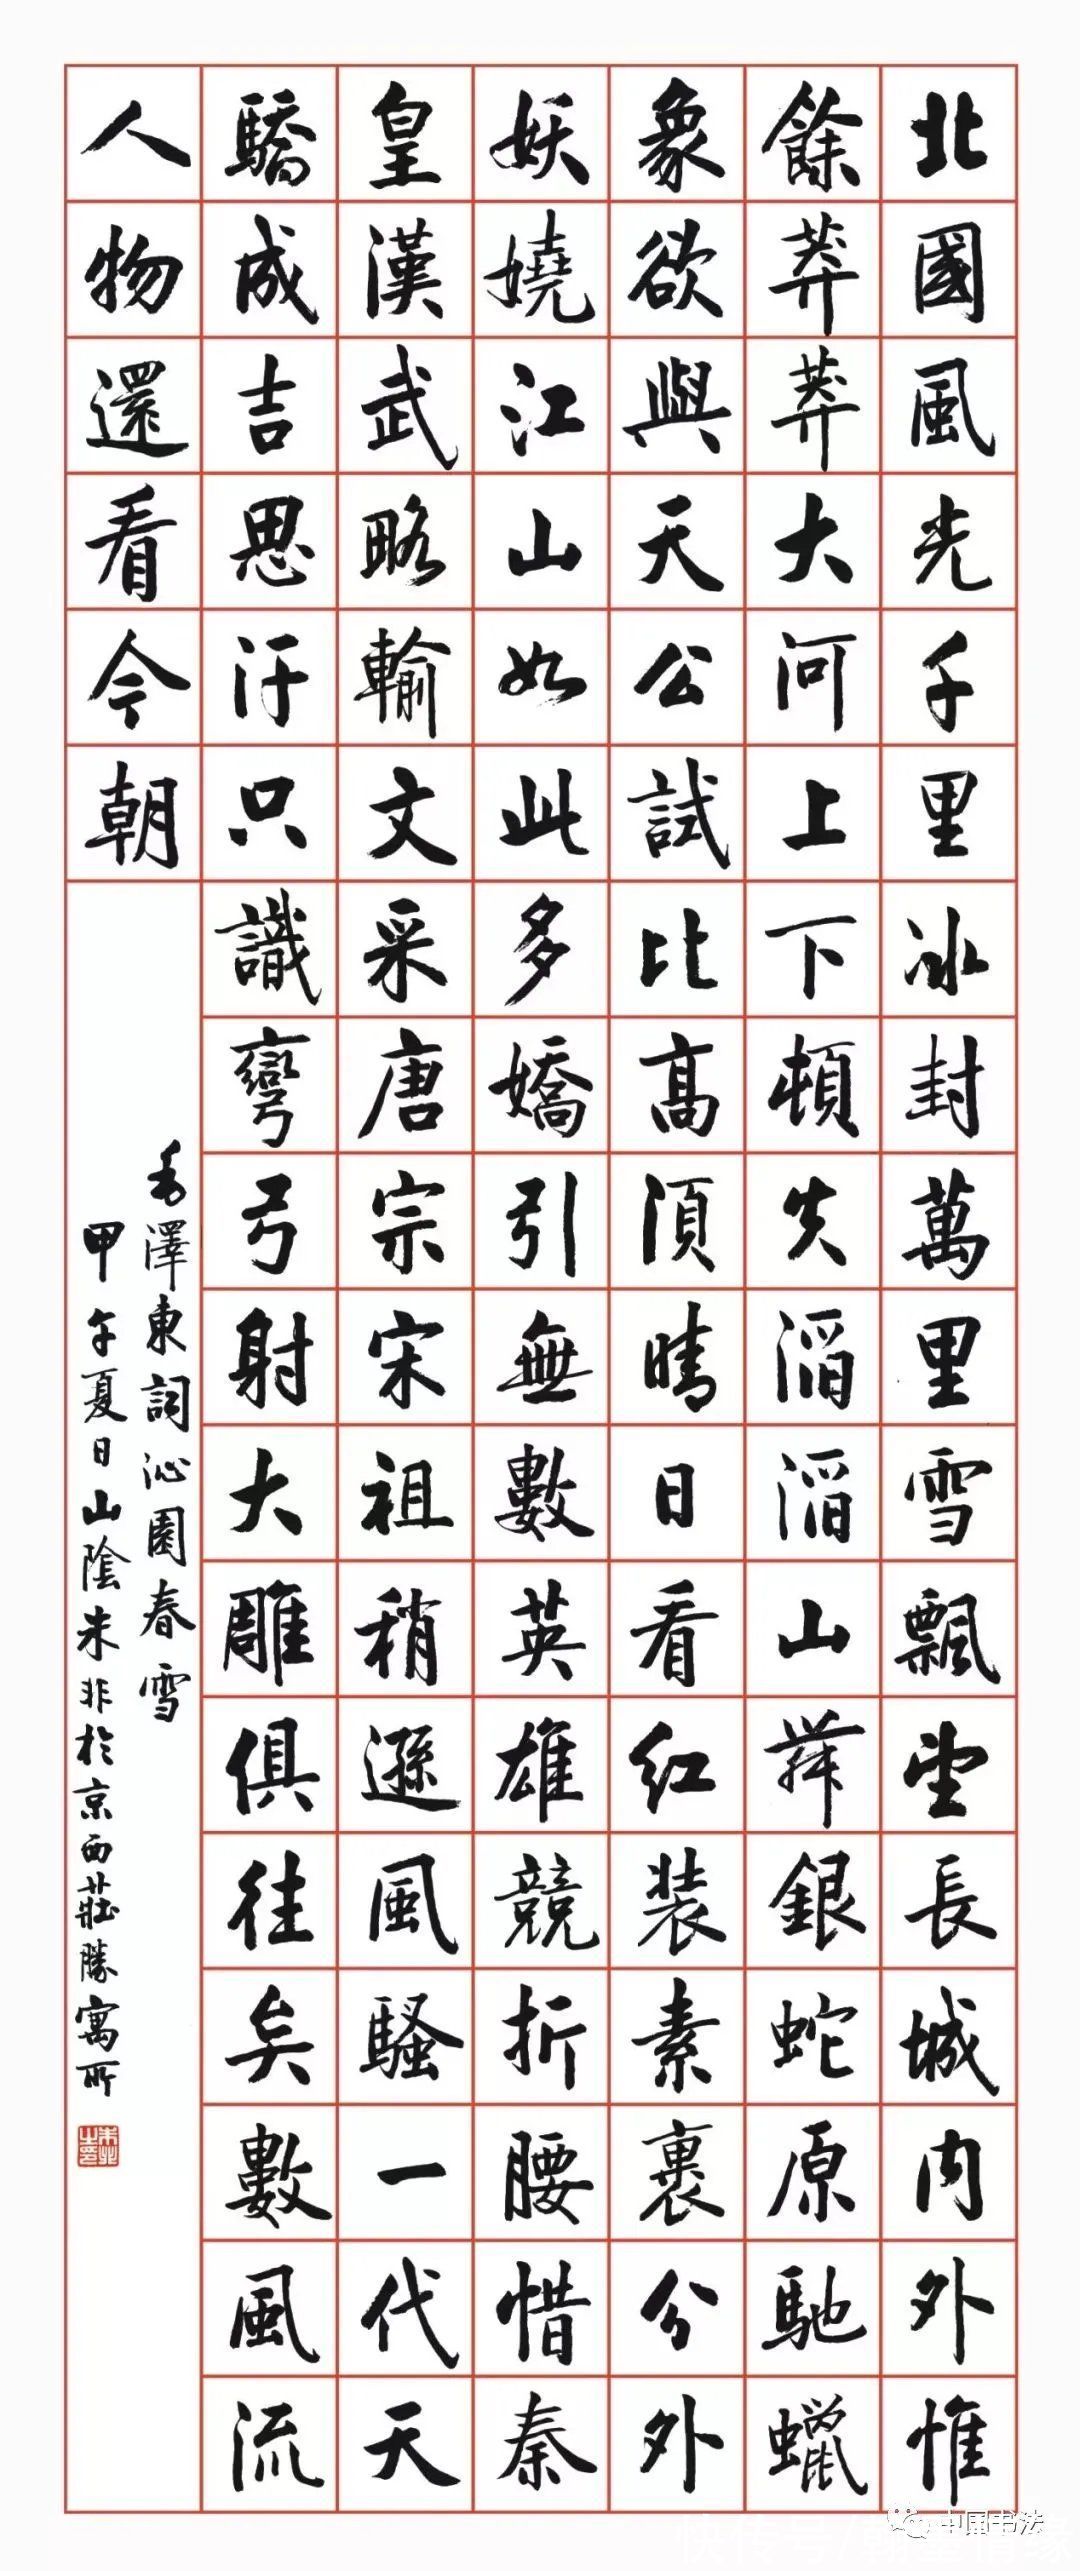 北國風光千里冰封萬里雪飄望長城內外惟
餘莽莽大河上下頓失滔滔山舞銀蛇原馳蠟
象欲與天公試比高須晴日看紅裝素裹分外
妖嬈江山如此多嬌引無數英雄競折腰惜秦
皇漢武略輸文采唐宗宋祖稍遜風騷一代天
驕成吉思汗只識彎弓射大雕俱往矣數風流
人物還看今朝
毛澤東詞沁園春雪
甲午夏日山陰朱非於京西莊勝寓所
中国书法